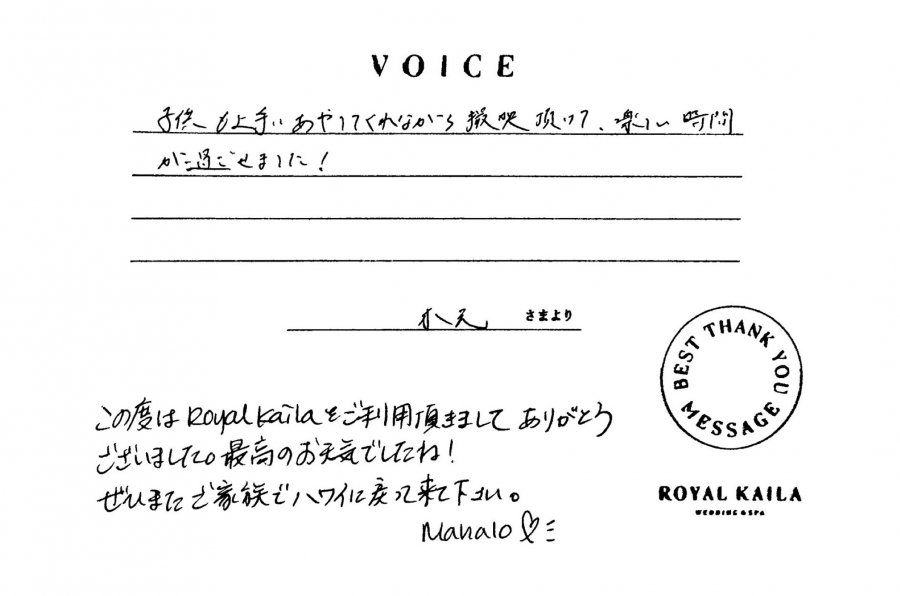 VOICE
子供も上手にあやしてくれながら撮映頂けて、楽しい時間
が過ごせました!
さまより
BEST THANK YOU
MESSAGE
この度は Royal Kailaをご利用頂きまして ありがとう
ございました。最高のお天気でしたね!
ぜひまた ご家族で ハワイに戻って来て下さい。
Mahalo
ROYAL KAILA
WEDDING & SPA